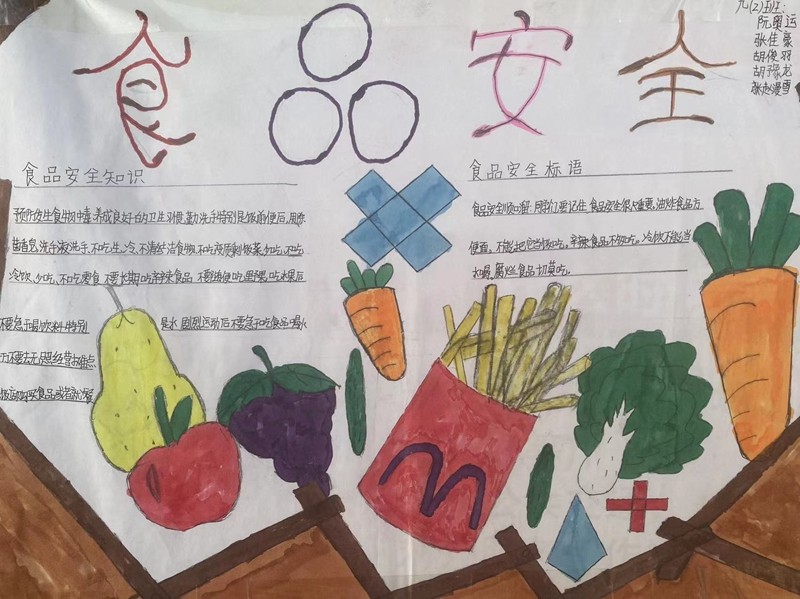 食品安全
九(2)班:
阮奥运
张佳豪
胡俊羽
胡豫龙
张赵漫雪
食品安全知识
预防发生食物中毒 养成良好的卫生习惯 勤洗手特别是饭前便后, 用除
菌香皂 洗手液洗手, 不吃生、冷、不清洁食物 不吃变质剩饭菜、少吃、不吃
冷饮、少吃、不吃零食 不要长期吃辛辣食品 不要随便吃野果, 吃水果后
不要急于喝饮料特别 是水 剧烈运动后不要急于吃食品喝水
食品安全标语
食品安全顺口溜 同学们要记住 食品安全很重要, 油炸食品方
便面, 不能把它当饭吃。辛辣食品不多吃。冷饮不能当
水喝, 腐烂食品切莫吃。